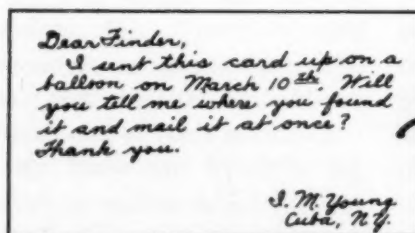 Dear Finder,
I sent this card up on a
balloon on March 10th. Will
you tell me where you found
it and mail it at once?
Thank you.
I. M. Young
Cuba, N.Y.